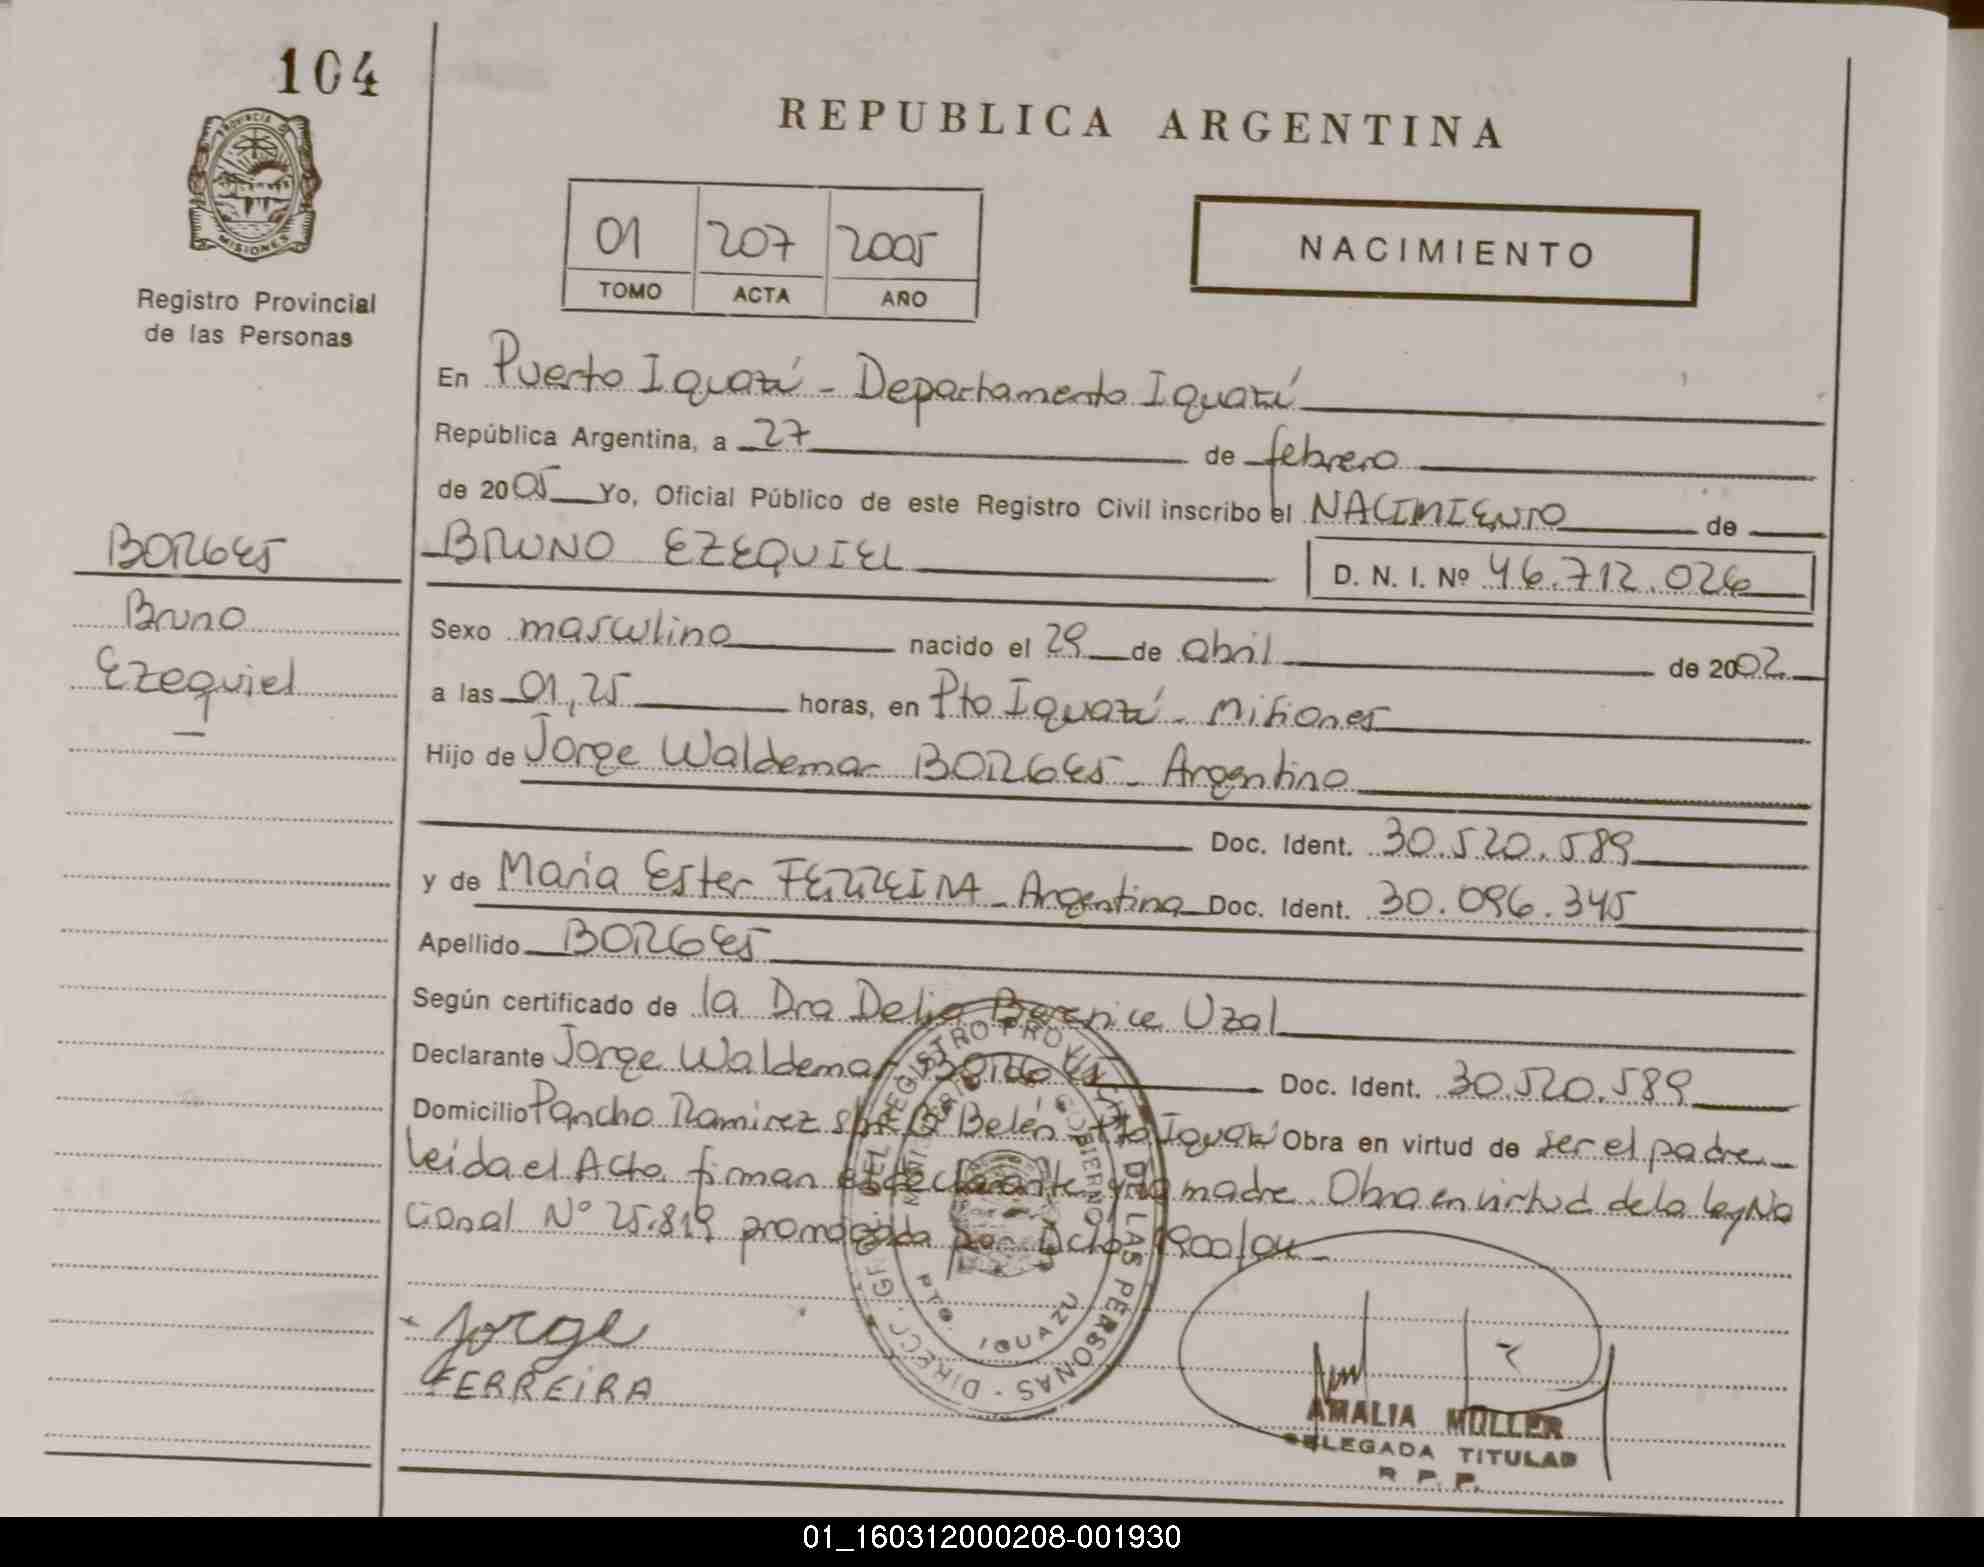 104
PROVINCIA DE
MISIONES
Registro Provincial
de las Personas
BORGES
Bruno
Ezequiel
REPUBLICA ARGENTINA
01 207 2005
TOMO ACTA AÑO
NACIMIENTO
En Puerto Iguazú - Departamento Iguazú
República Argentina, a 27 de febrero
de 2005 Yo, Oficial Público de este Registro Civil inscribo el NACIMIENTO de
BRUNO EZEQUIEL D. N. I. Nº 46.712.026
Sexo masculino nacido el 29 de abril de 2002
a las 01,25 horas, en Pto Iguazú - Misiones
Hijo de Jorge Waldemar BORGES - Argentino
Doc. Ident. 30.520.589
y de Maria Ester FERREIRA - Argentina Doc. Ident. 30.096.345
Apellido BORGES
Según certificado de la Dra Delia Berenice Uzal
Declarante Jorge Waldemar BORGES Doc. Ident. 30.520.589
Domicilio Pancho Ramirez Bº Belén Pto Iguazú Obra en virtud de ser el padre
Leida el Acta firman el declarante y la madre. Obra en virtud de la ley Na
cional Nº 25.819 promogada por Dcto 1900/04 -
Jorge
FERREIRA
DIRECC. GRAL. DEL REGISTRO PROVINCIAL DE LAS PERSONAS
MINISTERIO DE GOBIERNO
PTO. IGUAZU
AMALIA MULLER
DELEGADA TITULAR
R. P. P.
01_160312000208-001930